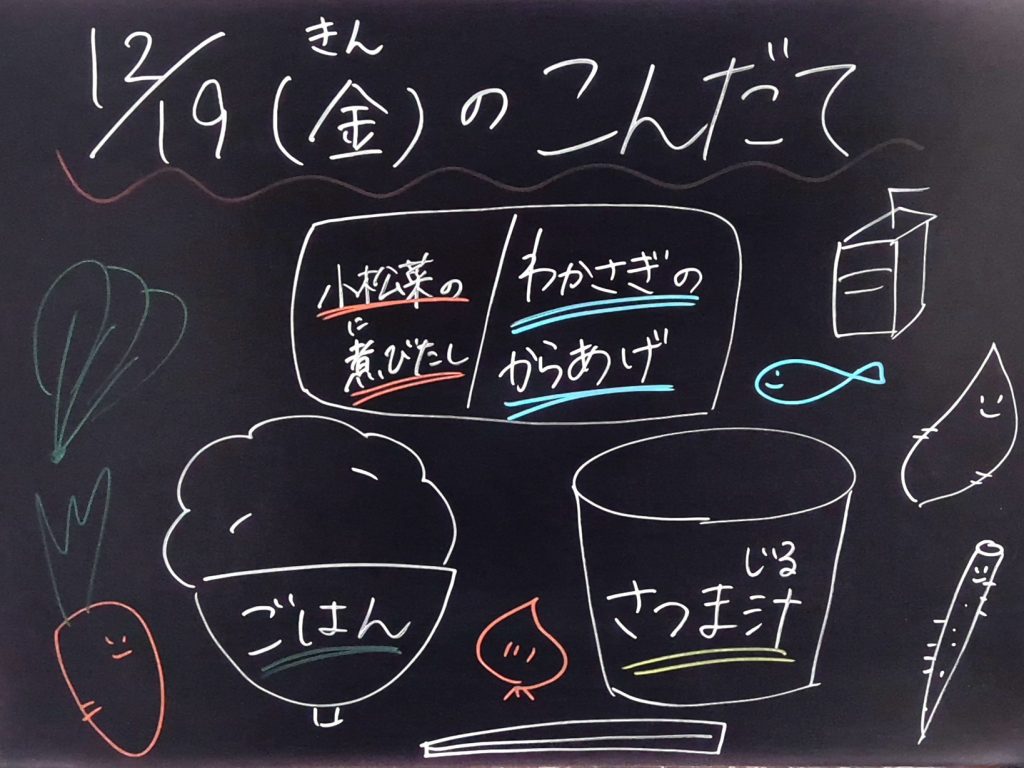 きん
12/19(金)のこんだて
小松菜の
に
煮びたし
わかさぎの
からあげ
ごはん
じる
さつま汁